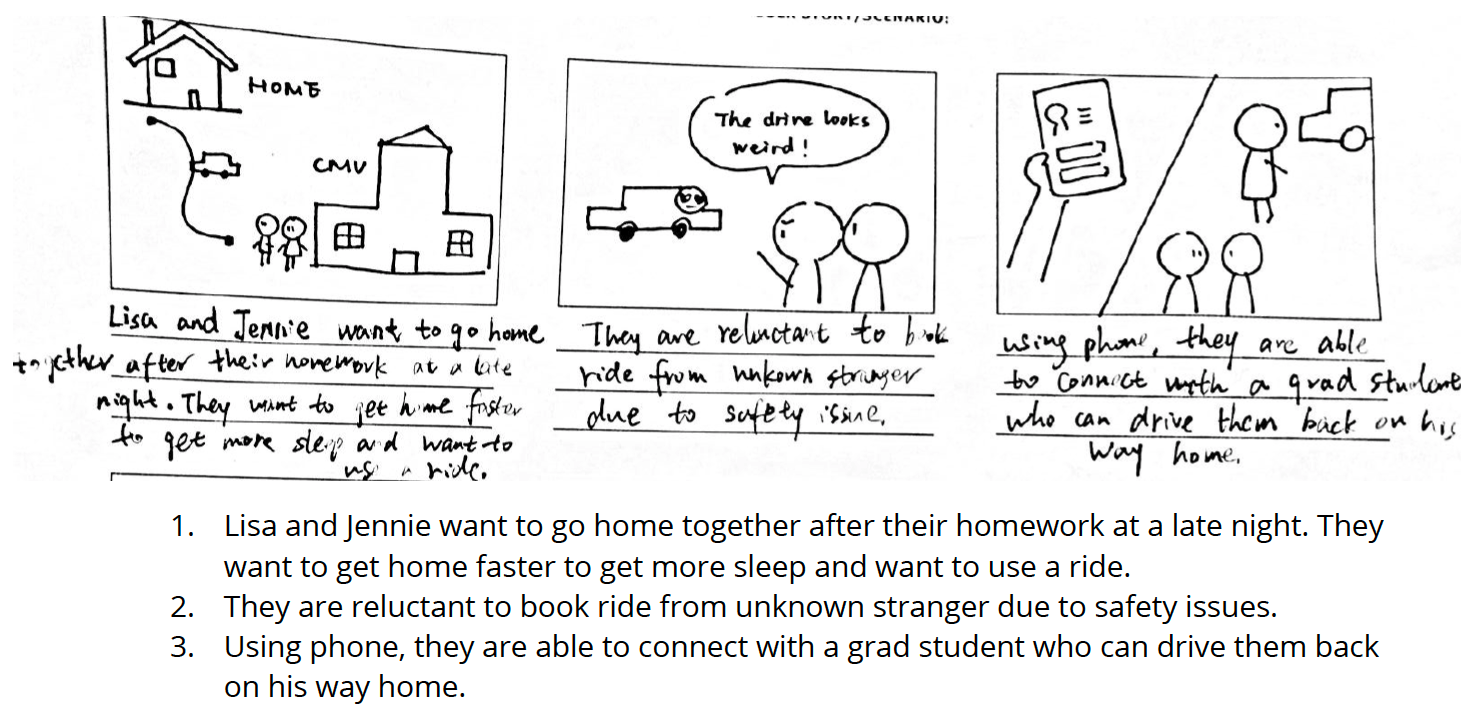 USER STORY/SCENARIO:
HOME
CMU
The drive looks
weird!
Lisa and Jennie want to go home
together after their homework at a late
night. They want to get home faster
to get more sleep and want to
use a ride.
They are reluctant to book
ride from unkown stranger
due to safety issue.
using phone, they are able
to connect with a grad student
who can drive them back on his
way home.
1. Lisa and Jennie want to go home together after their homework at a late night. They
want to get home faster to get more sleep and want to use a ride.
2. They are reluctant to book ride from unknown stranger due to safety issues.
3. Using phone, they are able to connect with a grad student who can drive them back
on his way home.